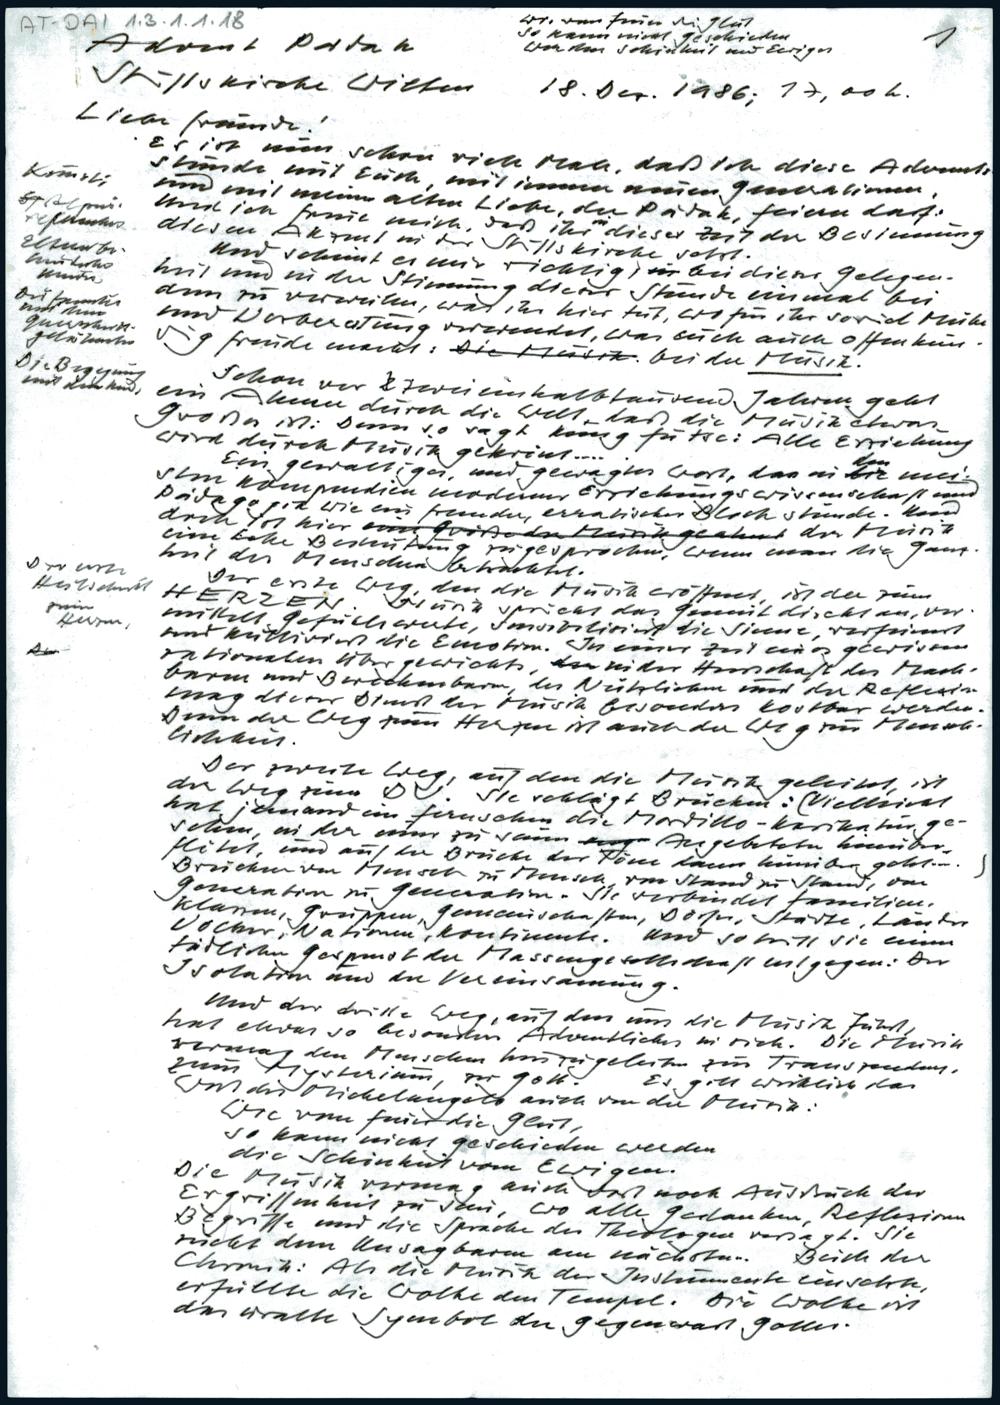 AT-DAI 1.3.1.1.18
Wie vom Feuer die Glut
so kann nicht geschieden
werden Schönheit und Ewiges
1
Advent Pädak
Stiftskirche Wilten 18. Dez. 1986; 17,00 h.
Liebe Freunde!
Es ist nun schon viele Male, daß ich diese Advents-
stunde mit Euch, mit immer neuen Generationen,
und mit meiner alten Liebe, der Pädak, feiern darf:
Und ich freue mich, daß ihr in dieser Zeit der Besinnung
diesen Akzent in der Stiftskirche setzt.
Und scheint es mir richtig, bei dieser Gelegen-
heit und in der Stimmung dieser Stunde einmal bei
dem zu verweilen, was ihr hier tut, wofür ihr soviel Mühe
und Vorbereitung verwendet, was euch auch offenkun-
dig Freude macht: Die Musik. bei der Musik.
Schon vor zweieinhalbtausend Jahren geht
ein Ahnen durch die Welt, daß die Musik etwas
Großes ist: Denn so sagt Kung futse: Alle Erziehung
wird durch Musik gekrönt....
Ein gewaltiges, und gewagtes Wort, das in den mei-
sten Kompendien moderner Erziehungswissenschaft und
Pädagogik wie ein fremder, erratischer Block stünde. Und
doch ist hier der Musik
eine hohe Bedeutung zugesprochen, wenn man die Ganz-
heit des Menschen betrachtet.
Der erste Weg, den die Musik eröffnet, ist der zum
HERZEN. Musik spricht das Gemüt direkt an, ver-
mittelt Gefühlswerte, sensibilisiert die Sinne, verfeinert
und kultiviert die Emotion. In einer Zeit eines gewissen
rationalen Übergewichts, in der Herrschaft des Mach-
baren und Berechenbaren, des Nützlichen und der Reflexion
mag dieser Dienst der Musik besonders kostbar werden.
Denn der Weg zum Herzen ist auch der Weg zur Mensch-
lichkeit.
Der zweite Weg, auf den die Musik geleitet, ist
der Weg zum DU. Sie schlägt Brücken: (Vielleicht
hat jemand im Fernsehen die Mordillo-Karikatur ge-
sehen, in der einer zu seiner Angebeteten hinüber-
flötet, und auf der Brücke der Töne dann hinüber geht...)
Brücken von Mensch zu Mensch, von Stand zu Stand, von
Generation zu Generation. Sie verbindet Familien,
Klassen, Gruppen, Gemeinschaften, Dörfer, Städte, Länder
Völker, Nationen, Kontinente. Und so tritt sie einem
tödlichen Gespenst der Massengesellschaft entgegen: Der
Isolation und der Vereinsamung.
Und der dritte Weg, auf den uns die Musik führt,
hat etwas so besonders Adventliches in sich. Die Musik
vermag den Menschen hinzugeleiten zur Transzendenz,
zum Mysterium, zu Gott. Es gilt wirklich das
Wort des Michelangelo auch von der Musik:
Wie vom Feuer die Glut,
so kann nicht geschieden werden
die Schönheit vom Ewigen.
Die Musik vermag auch dort noch Ausdruck der
Ergriffenheit zu sein, wo alle Gedanken, Reflexionen
Begriffe und die Sprache der Theologen versagt. Sie
rückt dem Unsagbaren am nächsten. Buch der
Chronik: Als die Musik der Instrumente einsetzte,
erfüllte die Wolke den Tempel. Die Wolke ist
das uralte Symbol der Gegenwart Gottes.
Die Begegnung
mit dem Kind,
Der erste
zum
Herzen,